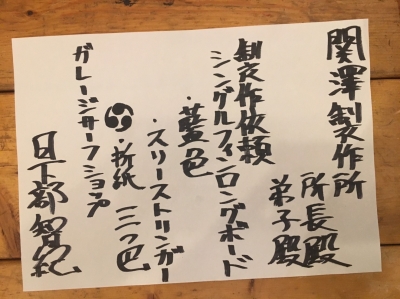 関澤製作所
所長殿
弟子殿
製作依頼
シングルフィンロングボード
・藍色
・スリーストリンガー
・折紙 三つ巴
ガレージサーフショップ
日下部智紀